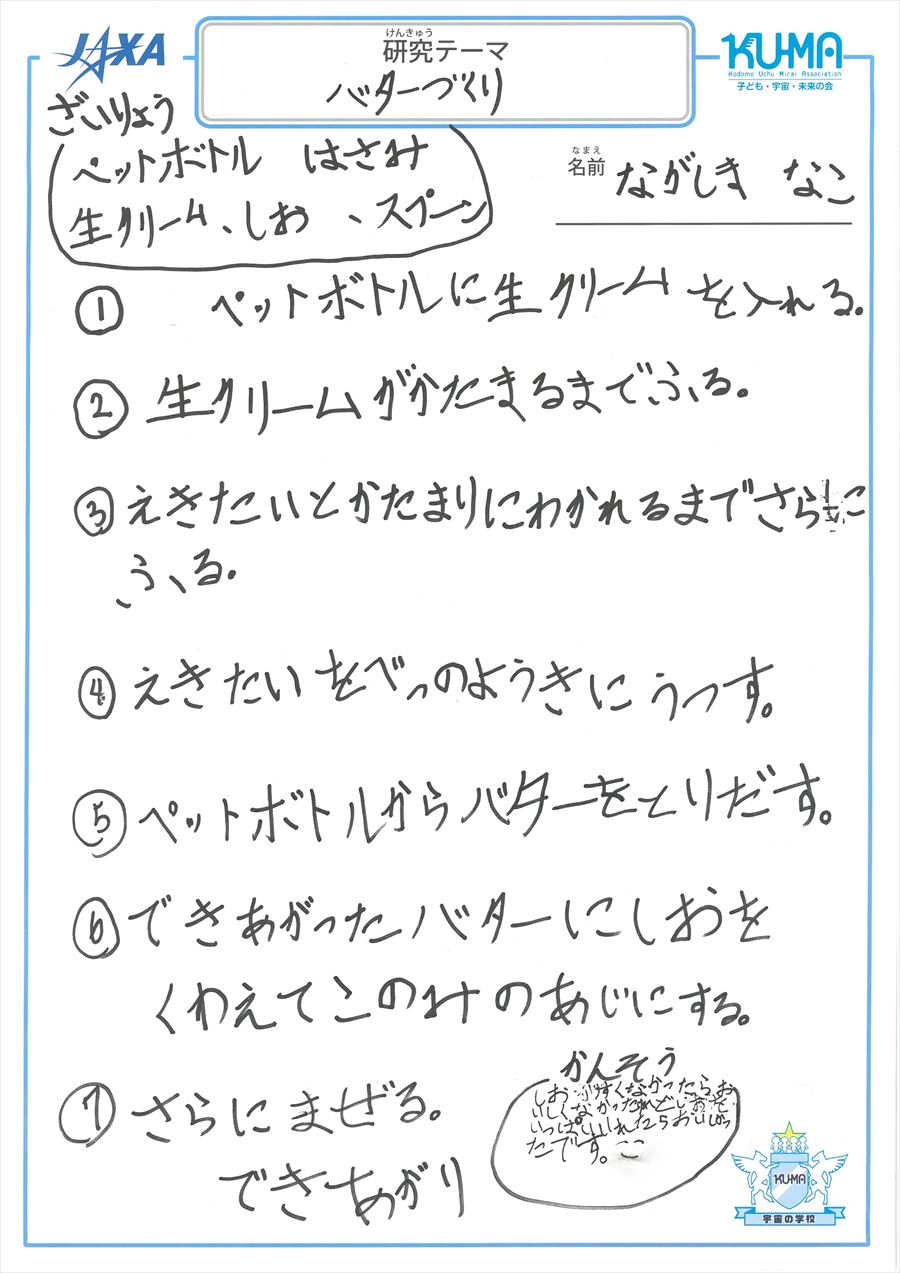 JAXA
けんきゅう
研究テーマ
バターづくり
KU-MA
Kodomo Uchu Mirai Association
子ども・宇宙・未来の会
ざいりょう
ペットボトル はさみ
生クリーム、しお、スプーン
なまえ
名前 ながしま なこ
① ペットボトルに生クリームを入れる。
② 生クリームがかたまるまでふる。
③ えきたいとかたまりにわかれるまでさらに
ふる。
④ えきたいをべつのようきにうつす。
⑤ ペットボトルからバターをとりだす。
⑥ できあがったバターにしおを
くわえてこのみのあじにする。
⑦ さらにまぜる。
できあがり
かんそう
しおがすくなかったらお
いしくなかったけどしおを
いっぱいいれたらおいしかっ
たです。
KU-MA
宇宙の学校